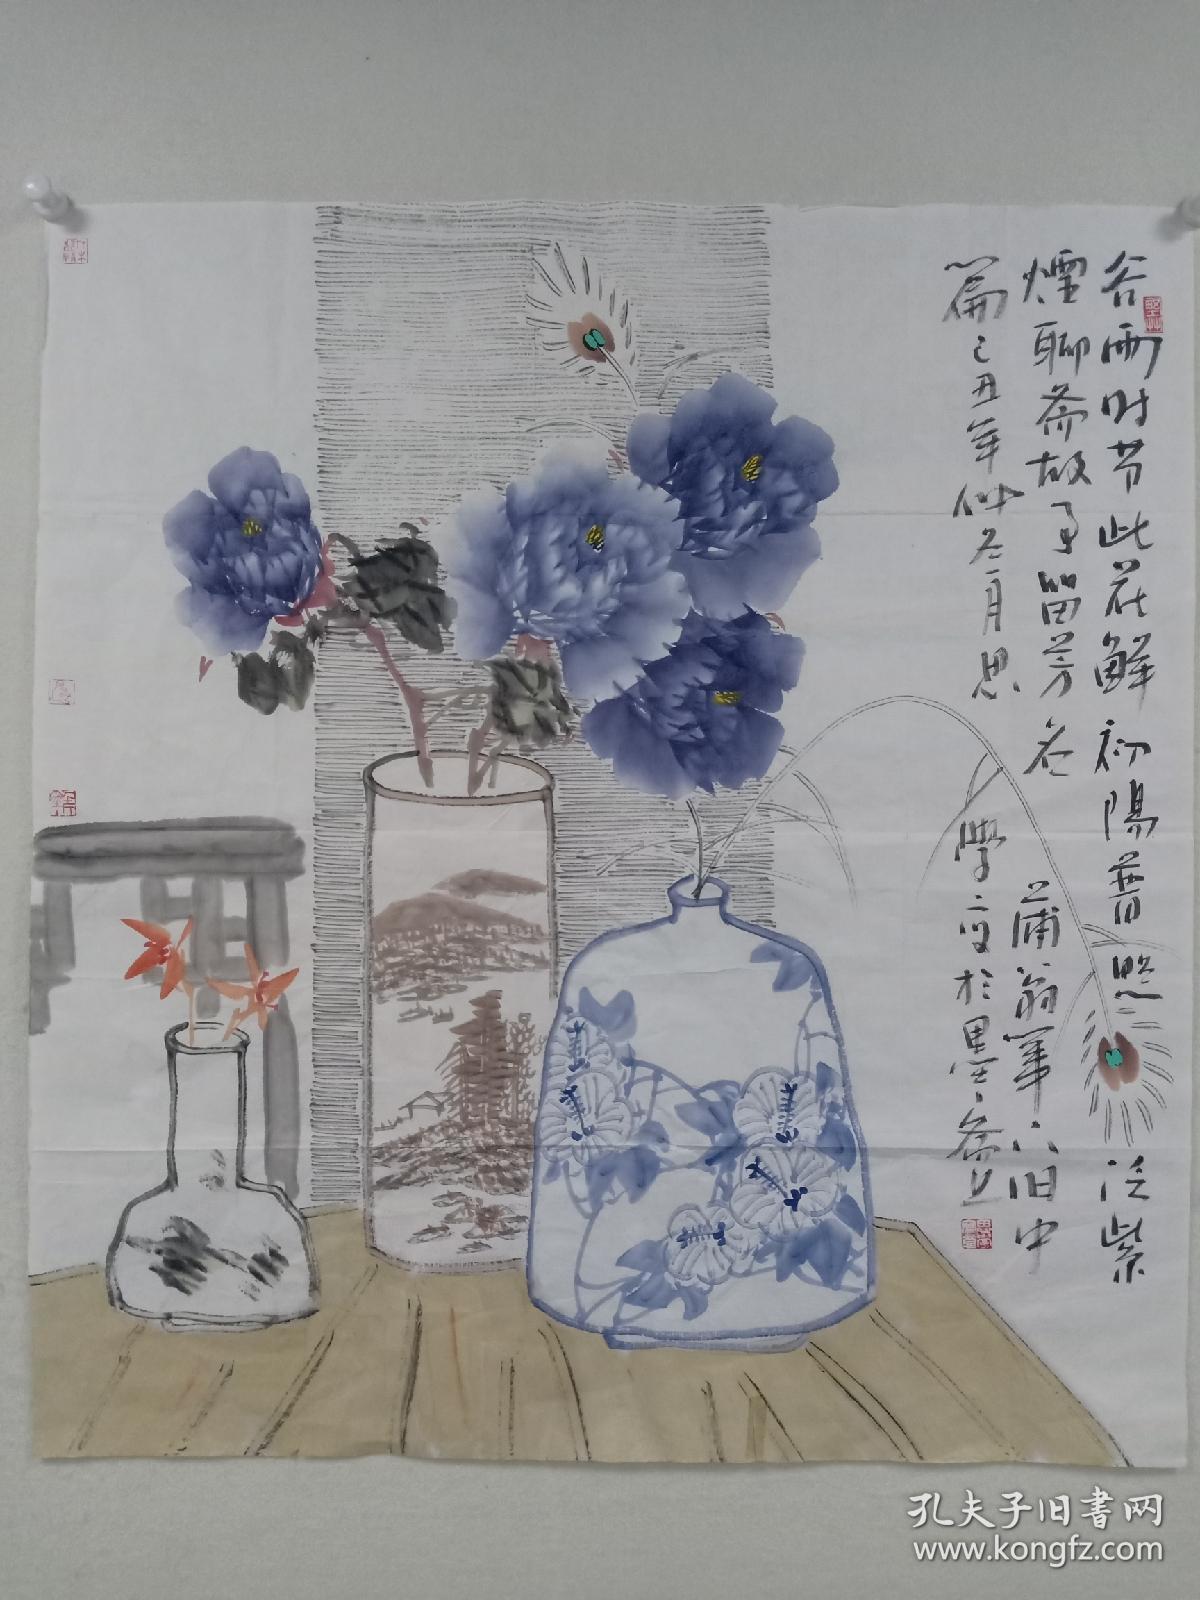 谷雨时节此花鲜初陽普照泛紫
煙聊斋故事留芳名蒲翁筆下旧中
篇己丑年仲冬月思學 写於墨斋
孔夫子旧书网
www.kongfz.com